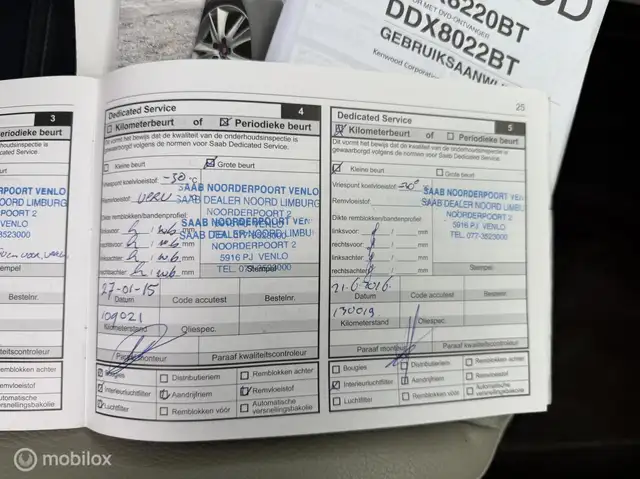 6220BT
OR MET DVD-ONTVANGER
DDX8022BT
GEBRUIKSAANWI
Kenwood Corporation
3
Periodieke beurt
Service.
SAAB NOORDERPOORT VENLO
mm
mm
mm
mm
Stempel
Bestelnr.
Paraaf kwaliteitscontroleur
Remblokken achter
Remvloeistof
Automatische
versnellingsbakolie
Dedicated Service
4
Kilometerbeurt of Periodieke beurt
Dit vormt het bewijs dat de kwaliteit van de onderhoudsinspectie is
gewaarborgd volgens de normen voor Saab Dedicated Service.
Kleine beurt Grote beurt
Vriespunt koelvloeistof: -30 °C
Remvloeistof:
SAAB NOORDERPOORT VENLO
SAAB DEALER NOORD LIMBURG
NOORDERPOORT 2
Dikte remblokken/bandenprofiel:
SAAB NOORDERPOORT VENLO
SAAB DEALER NOORD LIMBU
NOORDERPOORT 2
5916 PJ VENLO
TEL. 077-3523000
linksvoor: mm
rechtsvoor: mm
linksachter: mm
rechtsachter: mm
Stempel
27-01-15
Datum Code accutest Bestelnr.
109021
Kilometerstand Oliespec.
Paraaf monteur Paraaf kwaliteitscontroleur
Bougies Distributieriem Remblokken achter
Interieurluchtfilter Aandrijfriem Remvloeistof
Luchtfilter Remblokken vóór Automatische
versnellingsbakolie
25
Dedicated Service
5
Kilometerbeurt of Periodieke beurt
Dit vormt het bewijs dat de kwaliteit van de onderhoudsinspectie is
gewaarborgd volgens de normen voor Saab Dedicated Service.
Kleine beurt Grote beurt
Vriespunt koelvloeistof:
Remvloeistof:
SAAB NOORDERPOORT VENLO
SAAB DEALER NOORD LIMBURG
NOORDERPOORT 2
5916 PJ VENLO
TEL. 077-3523000
Dikte remblokken/bandenprofiel:
linksvoor: mm
rechtsvoor: mm
linksachter: mm
rechtsachter: mm
Stempel
21-6-2016
Datum Code accutest Bestelnr.
130019
Kilometerstand Oliespec.
Paraaf monteur Paraaf kwaliteitscontroleur
Bougies Distributieriem Remblokken achter
Interieurluchtfilter Aandrijfriem Remvloeistof
Luchtfilter Remblokken vóór Automatische
versnellingsbakolie
mobilox